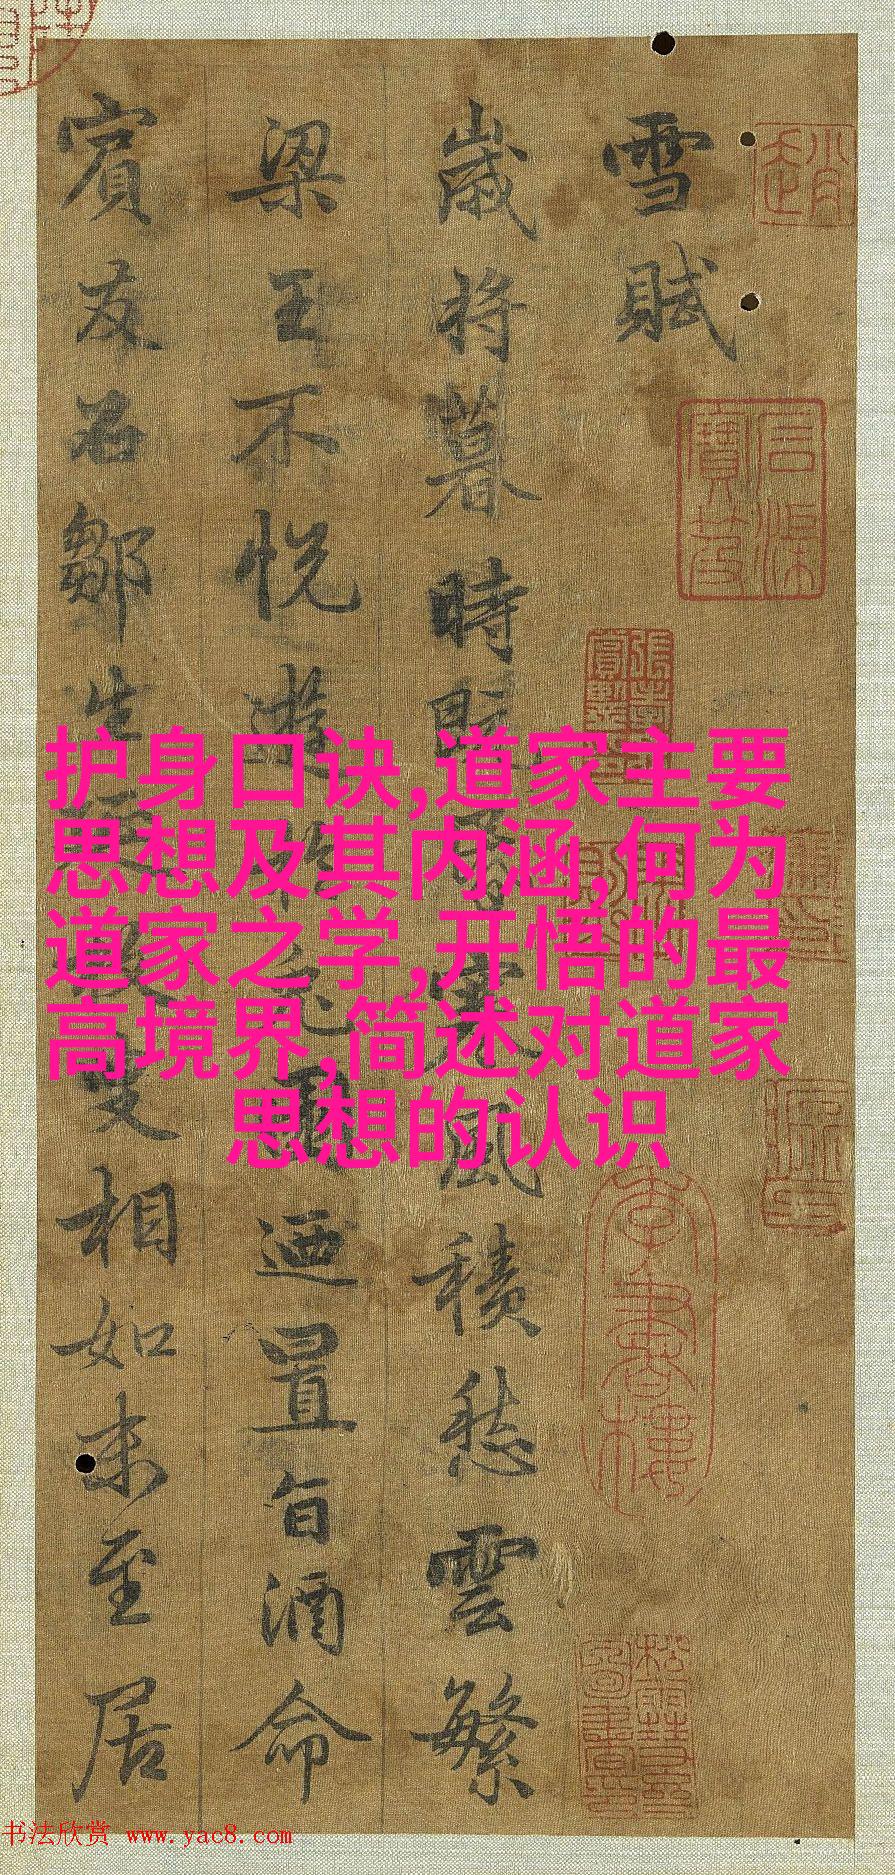 雪賦
歲将暮時既寒風積愁雲繁
梁王不悦遊兔迺置旨酒命
賓友召鄒生叟相如末至居
护身口诀,道家主要
思想及其内涵,何为
道家之学,开悟的最
高境界,简述对道家
思想的认识
书法欣赏 www.yac8.com